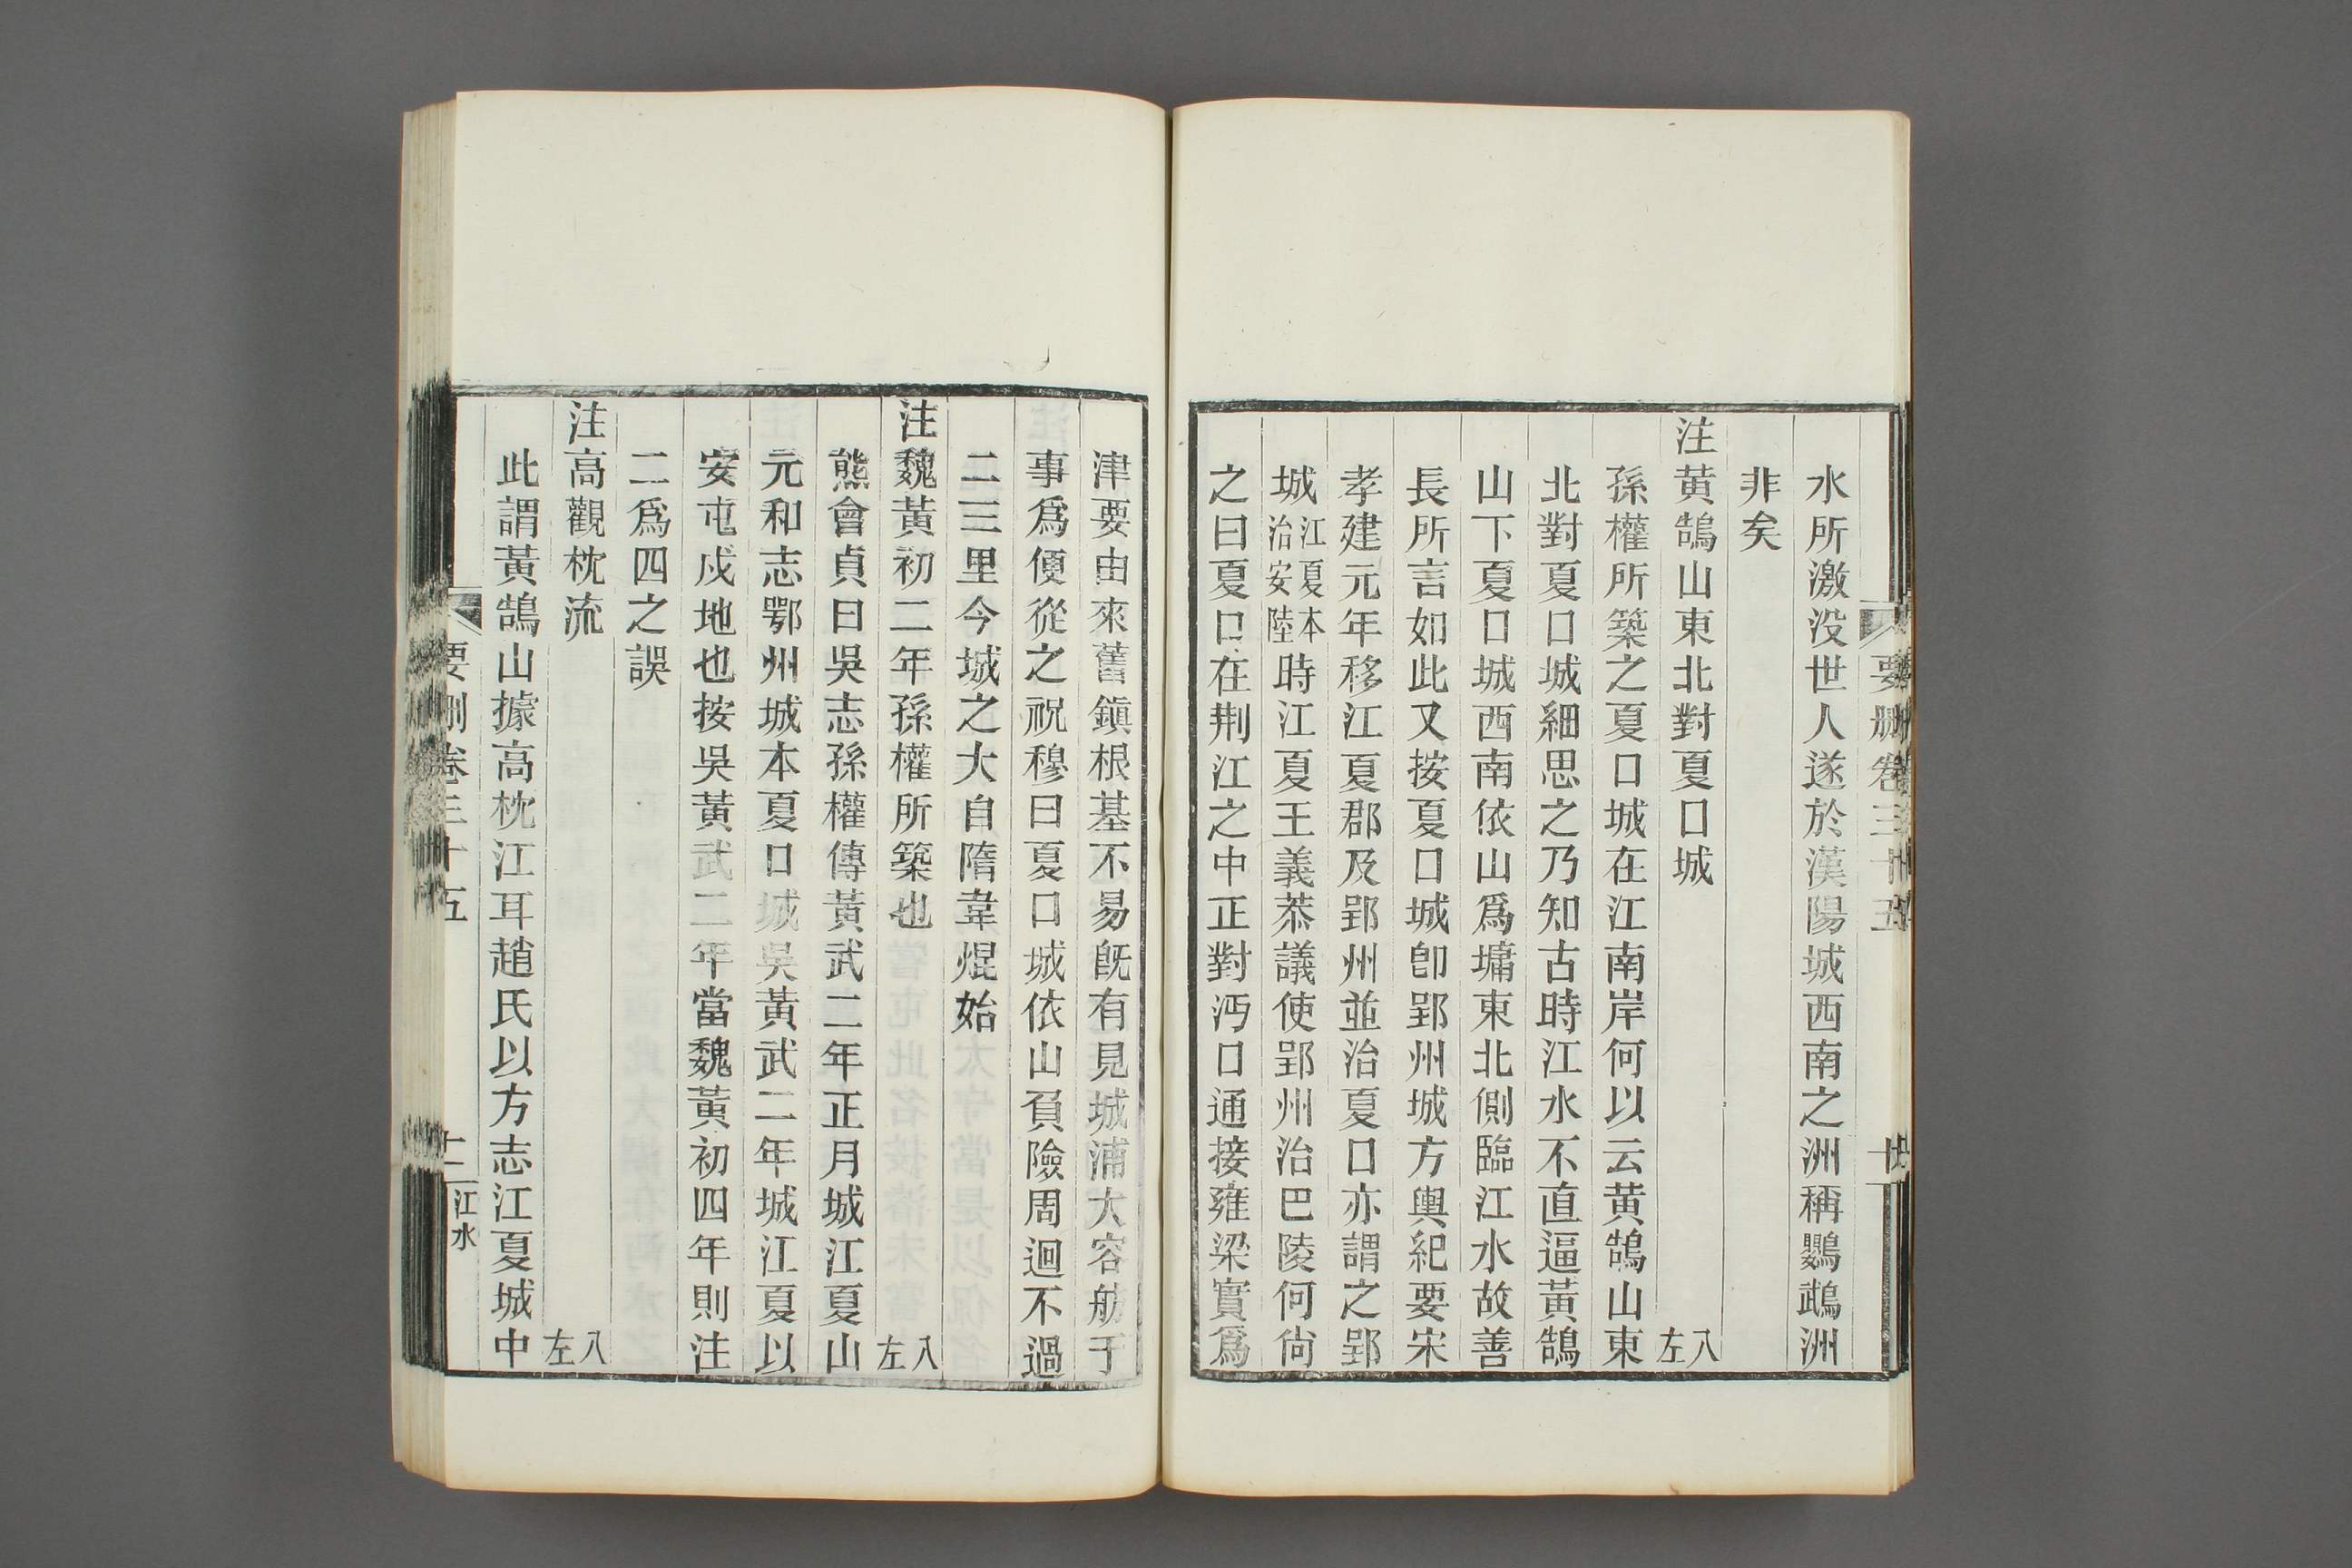 要刪卷三十五
十
水所激没世人遂於漢陽城西南之洲稱鸚鵡洲
非矣
注黃鵠山東北對夏口城 八左
孫權所築之夏口城在江南岸何以云黃鵠山東
北對夏口城細思之乃知古時江水不直逼黃鵠
山下夏口城西南依山爲墉東北側臨江水故善
長所言如此又按夏口城卽郢州城方輿紀要宋
孝建元年移江夏郡及郢州並治夏口亦謂之郢
城江夏本治安陸時江夏王義恭議使郢州治巴陵何尙
之曰夏口在荆江之中正對沔口通接雍梁實爲
津要由來舊鎭根基不易旣有見城浦大容舫于
事爲便從之祝穆曰夏口城依山負險周迴不過
二三里今城之大自隋韋焜始
注魏黃初二年孫權所築也 八左
熊會貞曰吳志孫權傳黃武二年正月城江夏山
元和志鄂州城本夏口城吳黃武二年城江夏以
安屯戍地也按吳黃武二年當魏黃初四年則注
二爲四之誤
注高觀枕流 八左
此謂黃鵠山據高枕江耳趙氏以方志江夏城中
要刪卷三十五
十一
江水